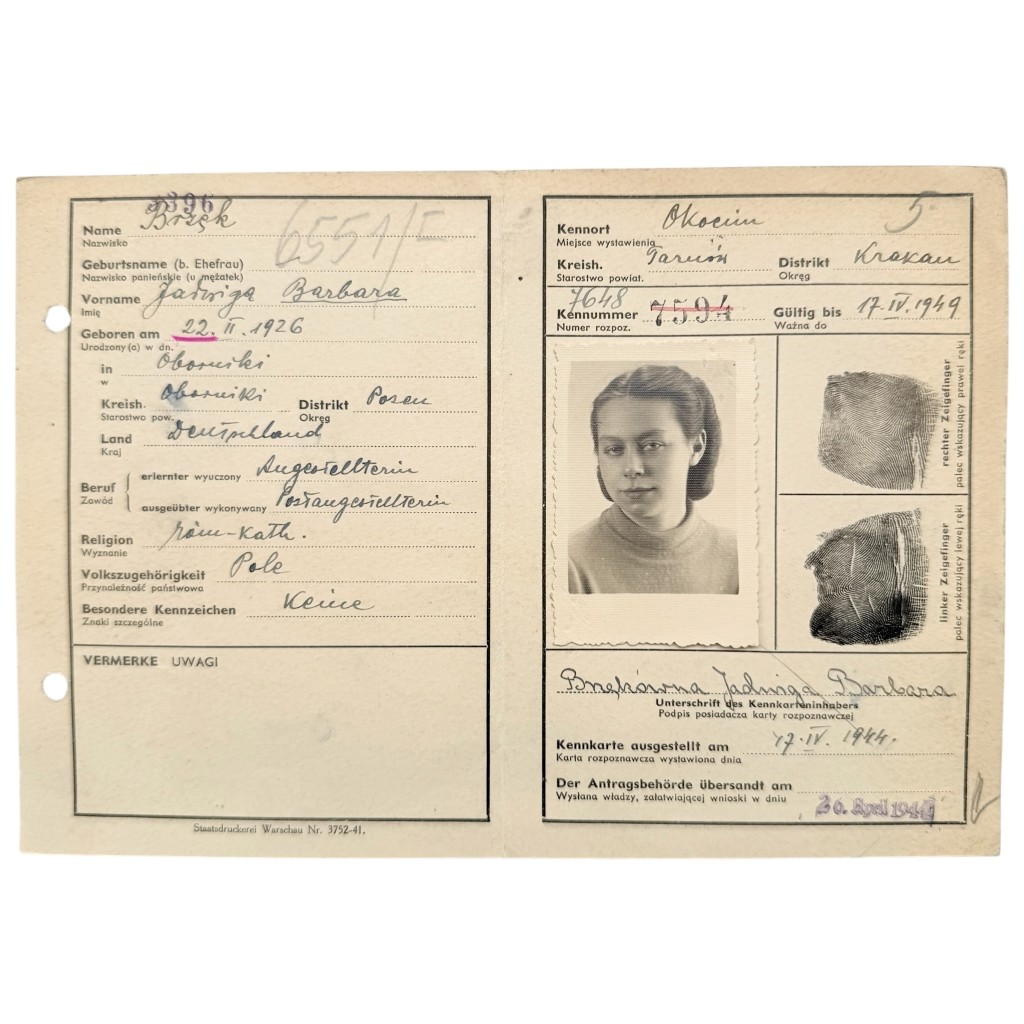 396
Name Brzęk
Nazwisko
6551/I
Geburtsname (b. Ehefrau)
Nazwisko panieńskie (u mężatek)
Vorname Jadwiga Barbara
Imię
Geboren am 22. II. 1926
Urodzony(a) w dn.
in Oborniki
w
Kreish. Oborniki Distrikt Posen
Starostwo pow. Okręg
Land Deutschland
Kraj
Beruf erlernter wyuczony Angestellterin
Zawód ausgeübter wykonywany Postangestellterin
Religion röm-kath.
Wyznanie
Volkszugehörigkeit Pole
Przynależność państwowa
Besondere Kennzeichen Keine
Znaki szczególne
VERMERKE UWAGI
Staatsdruckerei Warschau Nr. 3752-41.
5
Kennort Okocim
Miejsce wystawienia
Kreish. Tarnów Distrikt Krakau
Starostwo powiat. Okręg
7648
Kennummer 7594 Gültig bis 17. IV. 1949
Numer rozpoz. Ważna do
rechter Zeigefinger
palec wskazujący prawej ręki
linker Zeigefinger
palec wskazujący lewej ręki
Brzękówna Jadwiga Barbara
Unterschrift des Kennkarteninhabers
Podpis posiadacza karty rozpoznawczej
Kennkarte ausgestellt am 17. IV. 1944.
Karta rozpoznawcza wystawiona dnia
Der Antragsbehörde übersandt am
Wysłana władzy, załatwiającej wnioski w dniu
26. April 1944